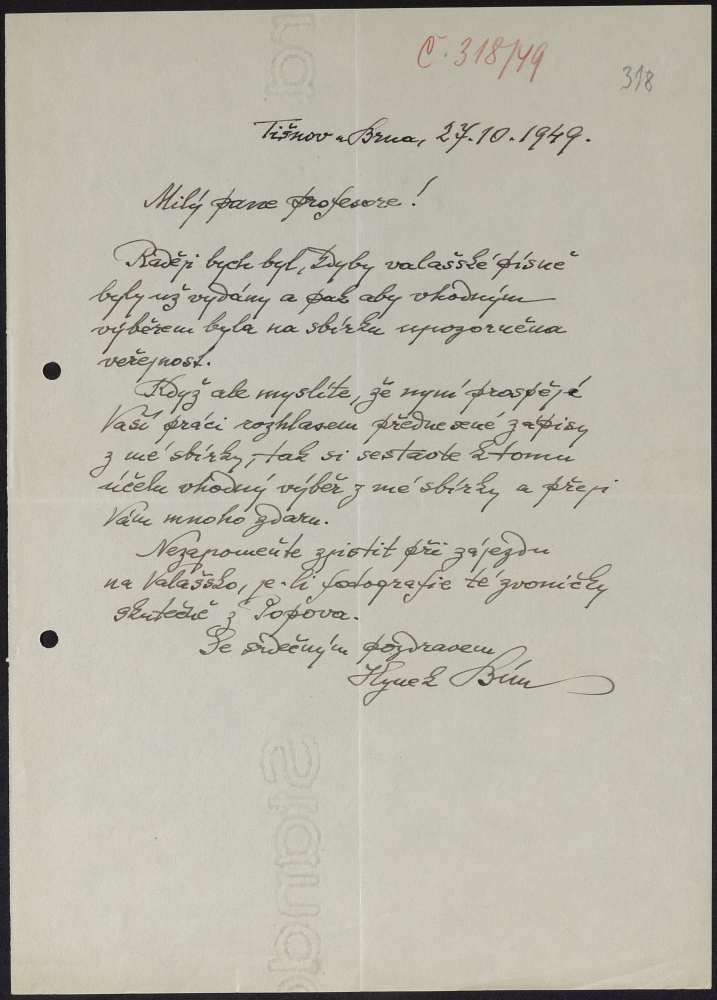 Č. 318/49
318
Tišnov u Brna, 27.10.1949.
Milý pane profesore!
Raději bych byl, kdyby valašské písně
byly už vydány a pak aby vhodným
výběrem byla na sbírku upozorněna
veřejnost.
Když ale myslíte, že nyní prospěje
Vaší práci rozhlasem přednesené zápisy
z mé sbírky, tak si sestavte k tomu
účelu vhodný výběr z mé sbírky a přeji
Vám mnoho zdaru.
Nezapomeňte zjistit při zájezdu
na Valašsko, je-li fotografie té zvoničky
skutečně z Popova.
Se srdečným pozdravem
Hynek Bím